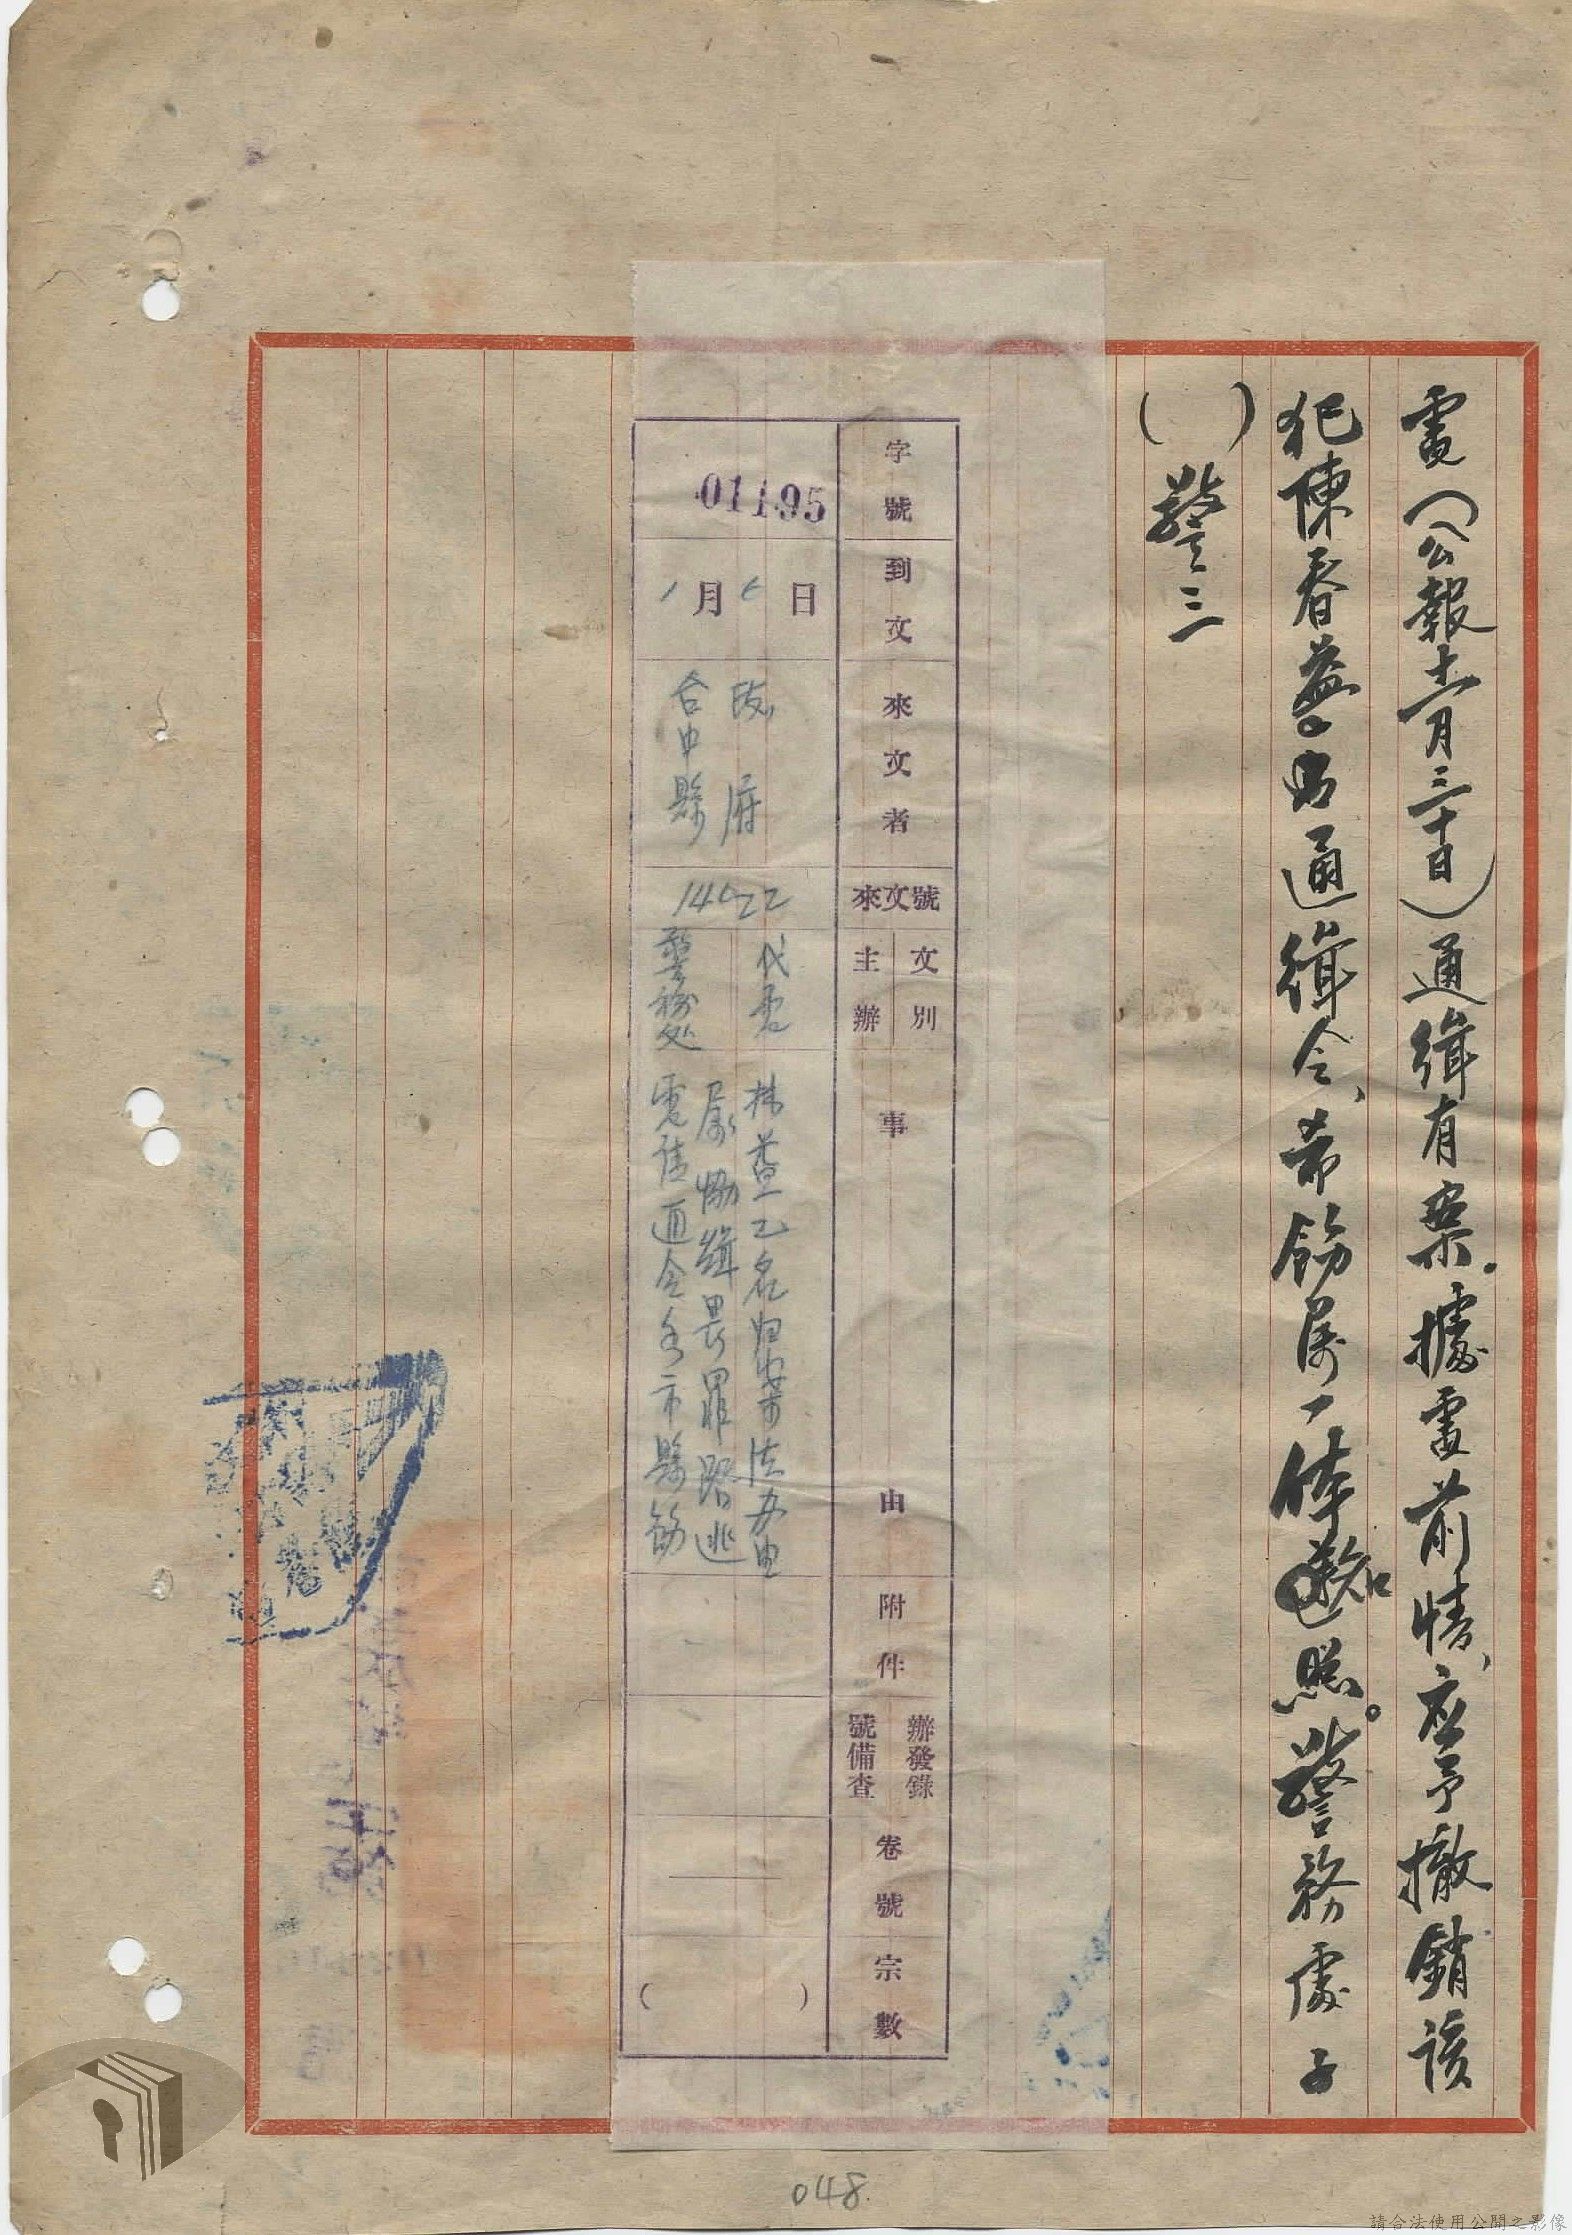 電（公報十一月三十日）通緝有案。據電前情、应予撤銷該
犯陳春益乙名通緝令、希飭属一体知照。警務處子
（ ）警三
字號 01195
到文 1月6日
來文者 台中縣政府
來文號 14622
文別 代電
主辦 警務処
事由
電請通令各市縣飭
属協緝畏罪潛逃
林益乙名归案法办由
附件
辦發錄號備查
卷號
宗數 （ ）
048
請合法使用公開之影像